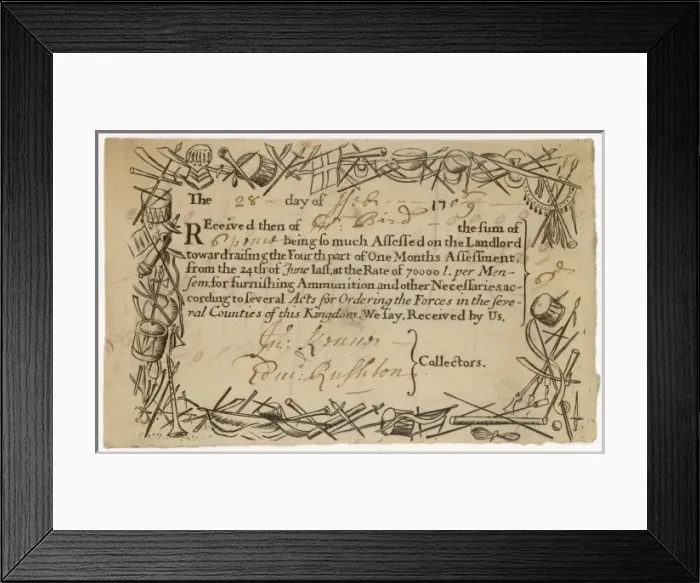 The 28 day of Feb 1709
REceived then of Mr. Bird the sum of
6 pence being so much Assessed on the Landlord
toward raising the Fourth part of One Months Assessment,
from the 24th of June last, at the Rate of 70000 l. per Men-
sem, for furnishing Ammunition and other Necessaries, ac-
cording to several Acts for Ordering the Forces in the seve-
ral Counties of this Kingdom. We say, Received by Us,
6d
Jno. Kenner
Edm: Rushton
Collectors.